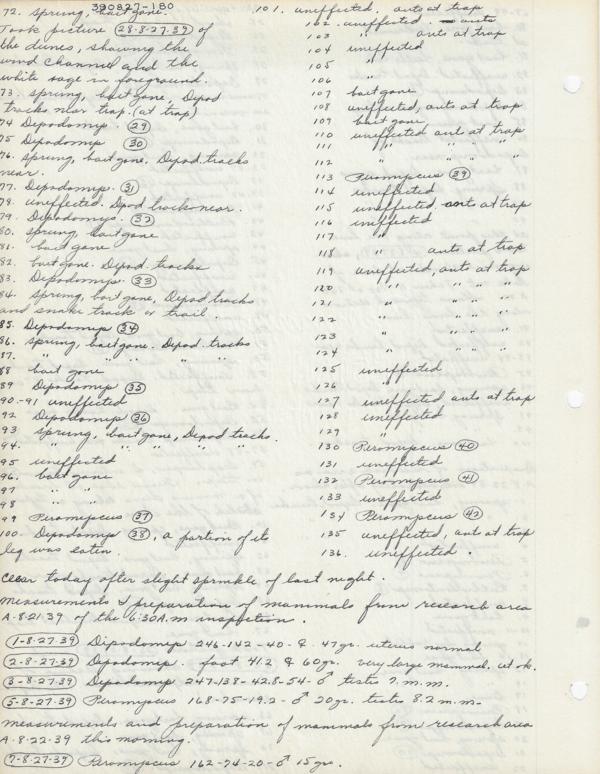 390827-180
72. sprung, bait gone.
Took picture (28-8-27-39) of
the dunes, showing the
wind channel and the
white sage in foreground.
73. sprung, bait gone, Depod
tracks near trap. (at trap)
74 Depodomys. (29)
75 Depodomys (30)
76. sprung, bait gone. Depod. tracks
near.
77. Depodomys. (31)
78. uneffected. Dpod tracks near.
79. Depodomys. (32)
80. sprung, bait gone
81. bait gone
82. bait gone. Depod. tracks
83. Depodomys. (33)
84. sprung, bait gone, Depod tracks
and snake track or trail.
85. Depodomys (34)
86. sprung, bait gone. Depod. tracks
87. " " " " "
88 bait gone
89 Depodomys (35)
90.-91 uneffected
92 Depodomys (36)
93 sprung, bait gone, Depod tracks.
94. " " " " "
95 uneffected
96. bait gone
97 " "
98 " "
99 Peromipcus (37)
100 Depodomys (38), a portion of its
leg was eaten.
101. uneffected. ants at trap
102. uneffected. ants
103 " ants at trap
104 uneffected
105 "
106 "
107 bait gone
108 uneffected, ants at trap
109 bait gone
110 uneffected ant at trap
111 " " " "
112 " " " "
113 Peromipcus (39)
114 uneffected
115 uneffected ants at trap
116 uneffected
117 "
118 " ants at trap
119 uneffected, ants at trap
120 " " " "
121 " " " "
122 " " " "
123 " " " "
124 " " " "
125 uneffected
126 "
127 uneffected ants at trap
128 uneffected
129 "
130 Peromipcus (40)
131 uneffected
132 Peromipcus (41)
133 uneffected
134 Peromipcus (42)
135 uneffected, ants at trap
136. uneffected.
Clear today after slight sprinkle of last night.
Measurements & preparation of mammals from research area
A-8-21-39 of the 6:30 A.m inspection.
(1-8-27-39) Dipodomys 246-142-40-♀ 47gr. uterus normal
(2-8-27-39) Depodomys. - foot 41.2 ♀ 60gr. very large mammal. ut ok.
(3-8-27-39) Depodomys 247-138-42.8-54-♂ testis 7. m.m.
(5-8-27-39) Peromypcus 168-75-19.2-♂ 20gr. testis 8.2 m.m-
Measurements and preparation of mammals from research area
A-8-22-39 this morning.
(7-8-27-39) Peromypcus 162-74-20-♂ 15gr.